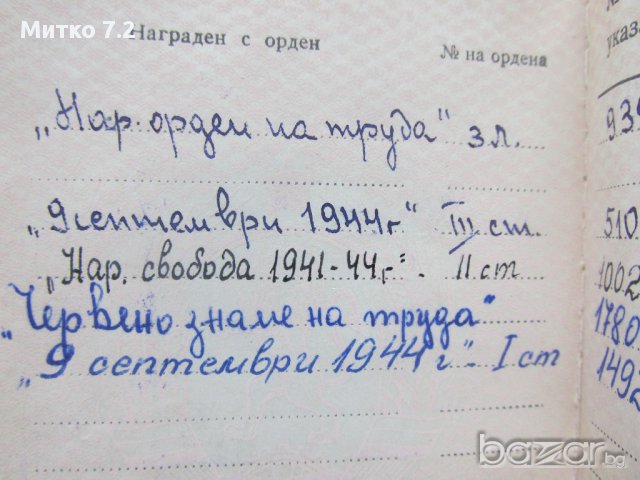 Митко 7.2
Награден с орден
№ на ордена
указ
„Нар. орден на труда" зл.
934
„9 септември 1944 г" III ст.
510
„Нар. свобода 1941-44г". II ст
1002
„Червено знаме на труда"
1780
„9 септември 1944 г". I ст
1492
bazar.bg